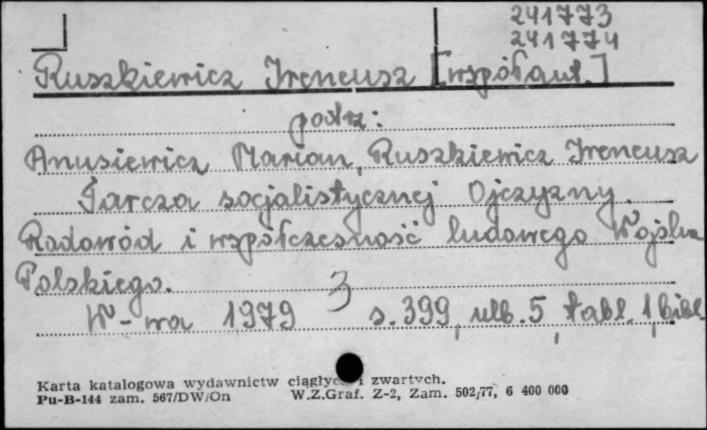 241773
241774
Ruszkiewicz Ireneusz [współaut.]
patrz:
Anusiewicz Marian, Ruszkiewicz Ireneusz
Tarcza socjalistycznej Ojczyzny.
Rodowód i współczesność ludowego Wojska
Polskiego.
W-wa 1979 3 s. 399, nlb. 5, tabl. 1, bibl.
Karta katalogowa wydawnictw ciągłych i zwartych.
Pu-B-144 zam. 567/DW/On W.Z.Graf. Z-2, Zam. 502/77, 6 400 000